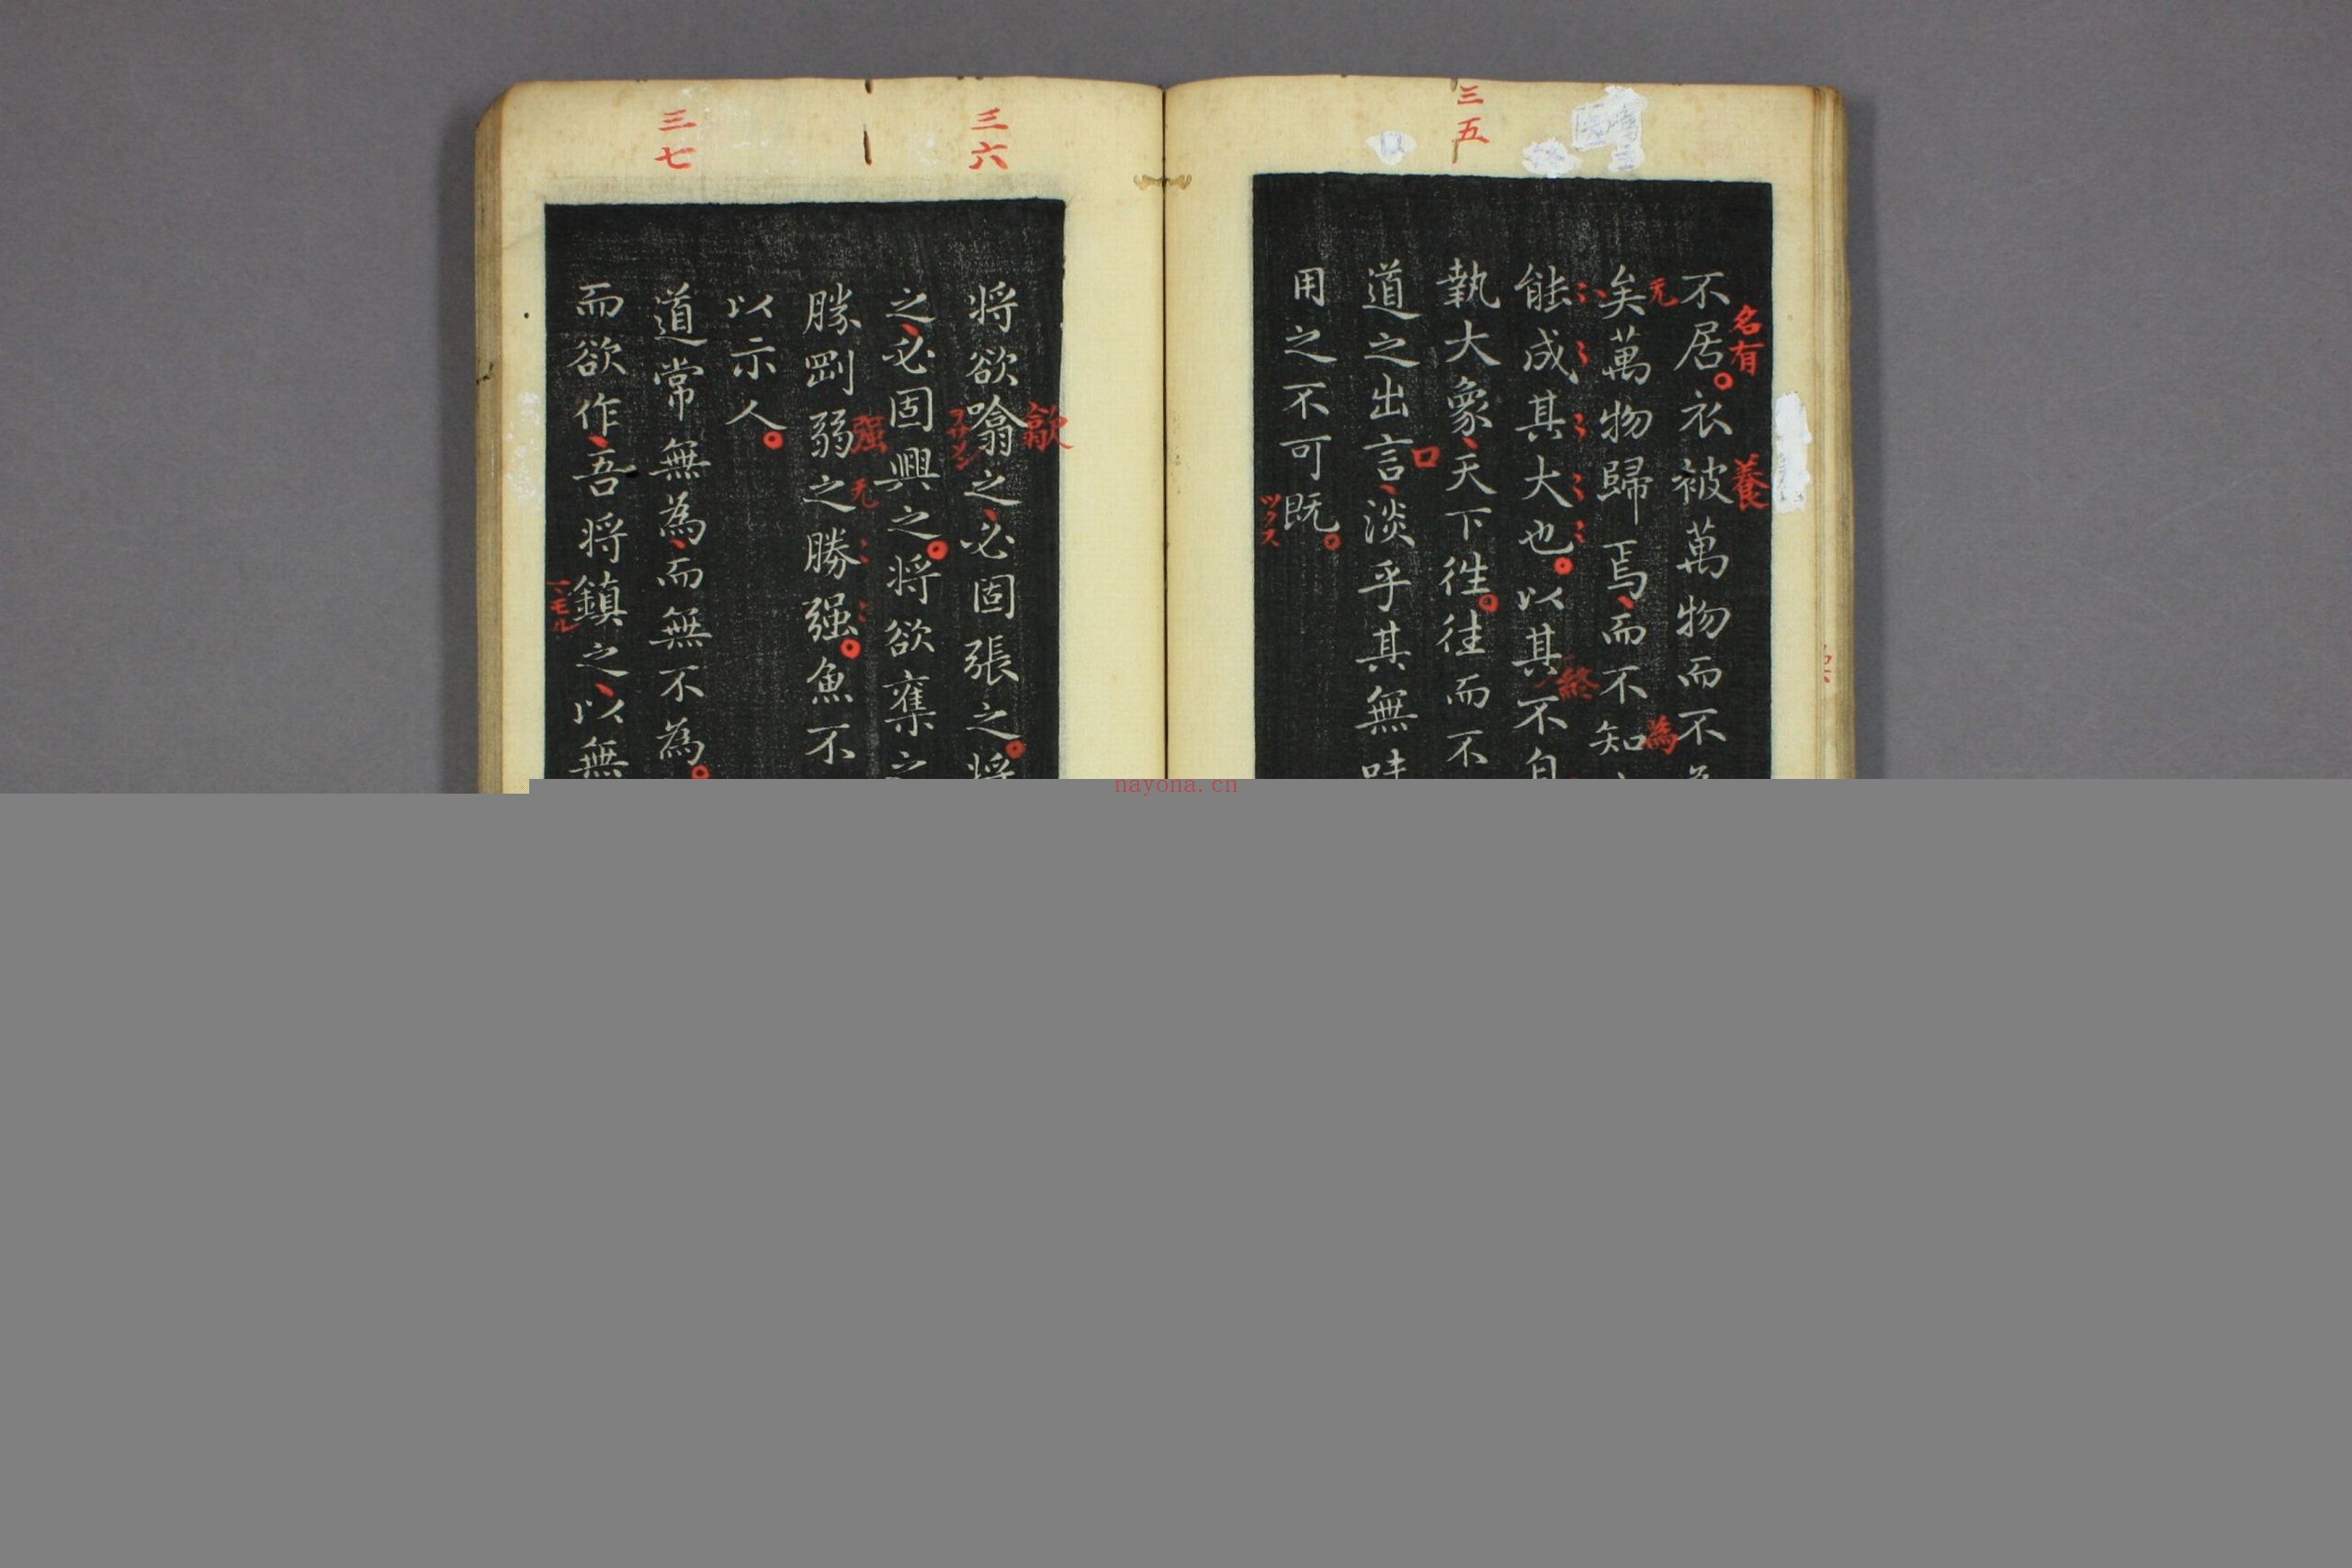 三五
名有
不居衣被萬物而不
養
為
矣萬物歸焉而不知
无
能成其大也以其不自
終
執大象天下徃往而不
道之出言淡乎其無味
口
用之不可既
ツクス
三六
三七
將欲噏之必固張之將
歙
之必固興之將欲奪之
勝剛弱之勝强魚不
强
无
以示人
道常無為而無不為
而欲作吾將鎮之以無
nayona.cn